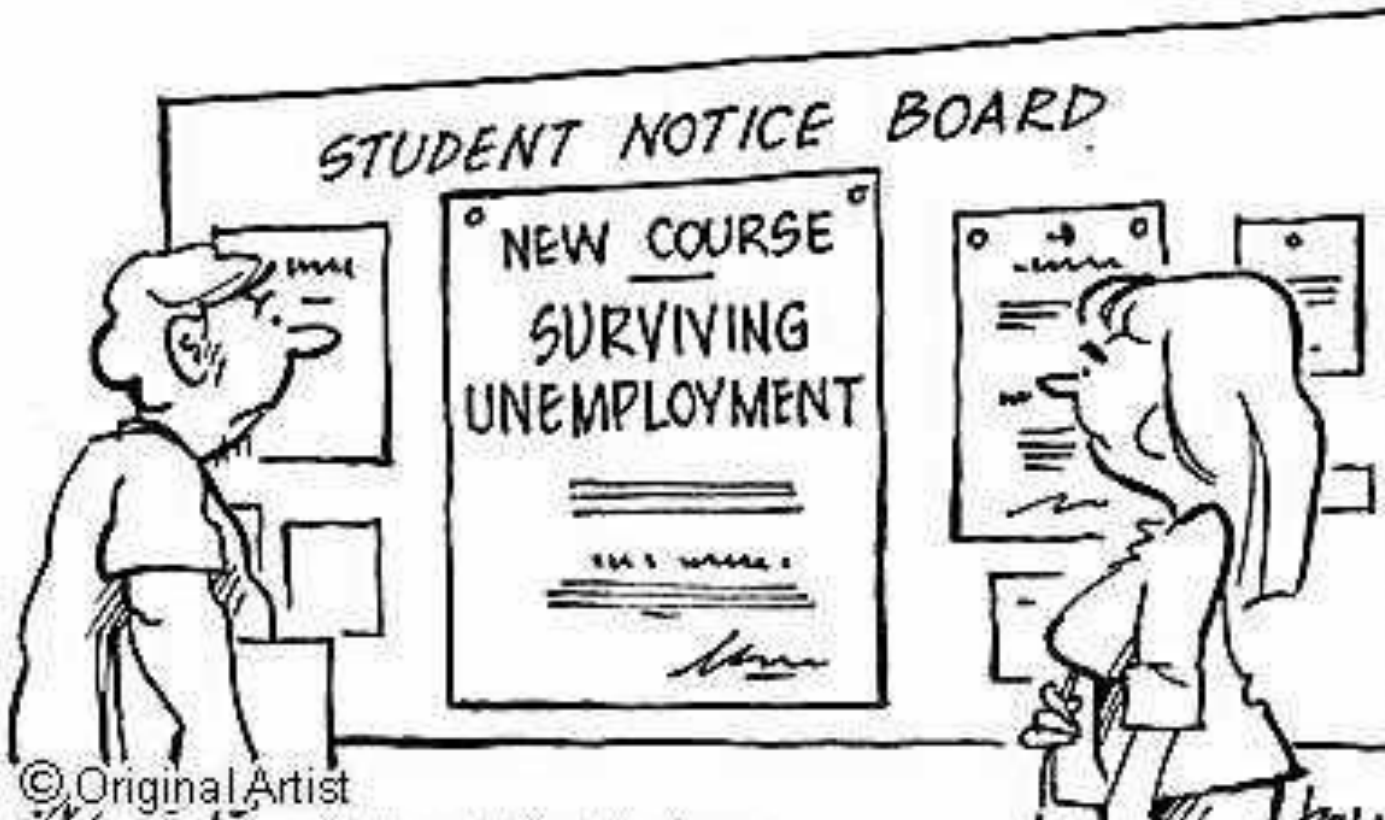 STUDENT NOTICE BOARD
NEW COURSE
SURVIVING
UNEMPLOYMENT
© Original Artist